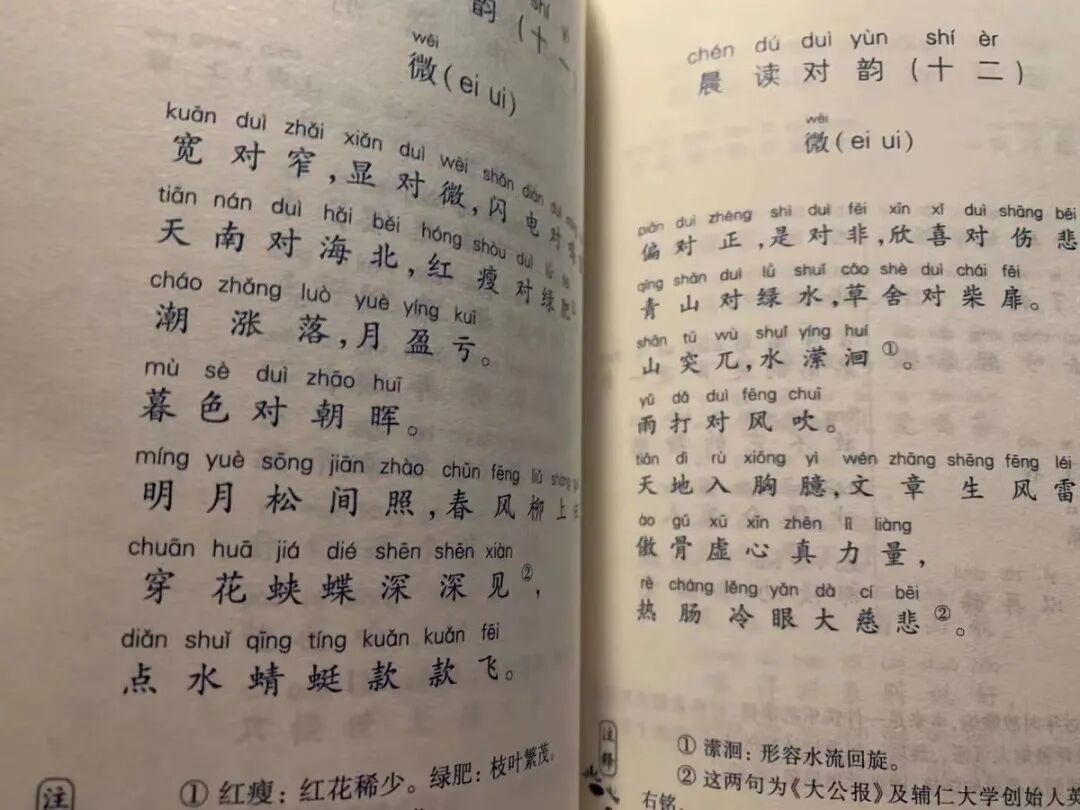 韵(十一
wēi
微(ei ui)
kuān duì zhǎi xiǎn duì wēi shǎn diàn duì
宽对窄,显对微,闪电对
tiān nán duì hǎi běi hóng shòu duì
天南对海北,红瘦对绿肥
cháo zhǎng luò yuè yíng kuī
潮涨落,月盈亏。
mù sè duì zhāo huī
暮色对朝晖。
míng yuè sōng jiān zhào chūn fēng liǔ shàng
明月松间照,春风柳上
chuān huā jiá dié shēn shēn xiàn
穿花蛱蝶深深见②,
diǎn shuǐ qīng tíng kuǎn kuǎn fēi
点水蜻蜓款款飞。
注
① 红瘦:红花稀少。绿肥:枝叶繁茂。
chén dú duì yùn shí èr
晨读对韵(十二)
wēi
微(ei ui)
piān duì zhèng shì duì fēi xīn xǐ duì shāng bēi
偏对正,是对非,欣喜对伤悲
qīng shān duì lǜ shuǐ cǎo shè duì chái fēi
青山对绿水,草舍对柴扉。
shān tū wù shuǐ yíng huí
山突兀,水潆洄①。
yǔ dǎ duì fēng chuī
雨打对风吹。
tiān dì rù xiōng yì wén zhāng shēng fēng léi
天地入胸臆,文章生风雷
ào gǔ xū xīn zhēn lì liàng
傲骨虚心真力量,
rè cháng lěng yǎn dà cí bēi
热肠冷眼大慈悲②。
注释
① 潆洄:形容水流回旋。
② 这两句为《大公报》及辅仁大学创始人英
右铭。